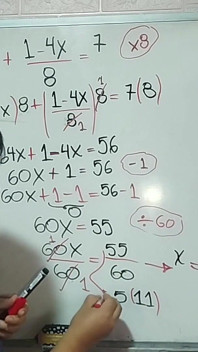 + 1-4x/8 = 7 x8
x)8 + (1-4x/8)8 = 7(8)
64x+1-4x = 56
60x + 1 = 56 -1
60x + 1 - 1 = 56-1
0
60x = 55 ÷60
60x/60 = 55/60 → x =
5(11)